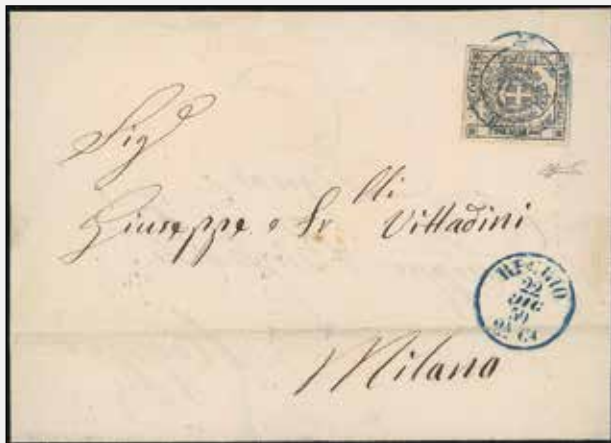 Sig
Giuseppe e Fr lli Vittadini
REGGIO
22
DIC
59
Milano